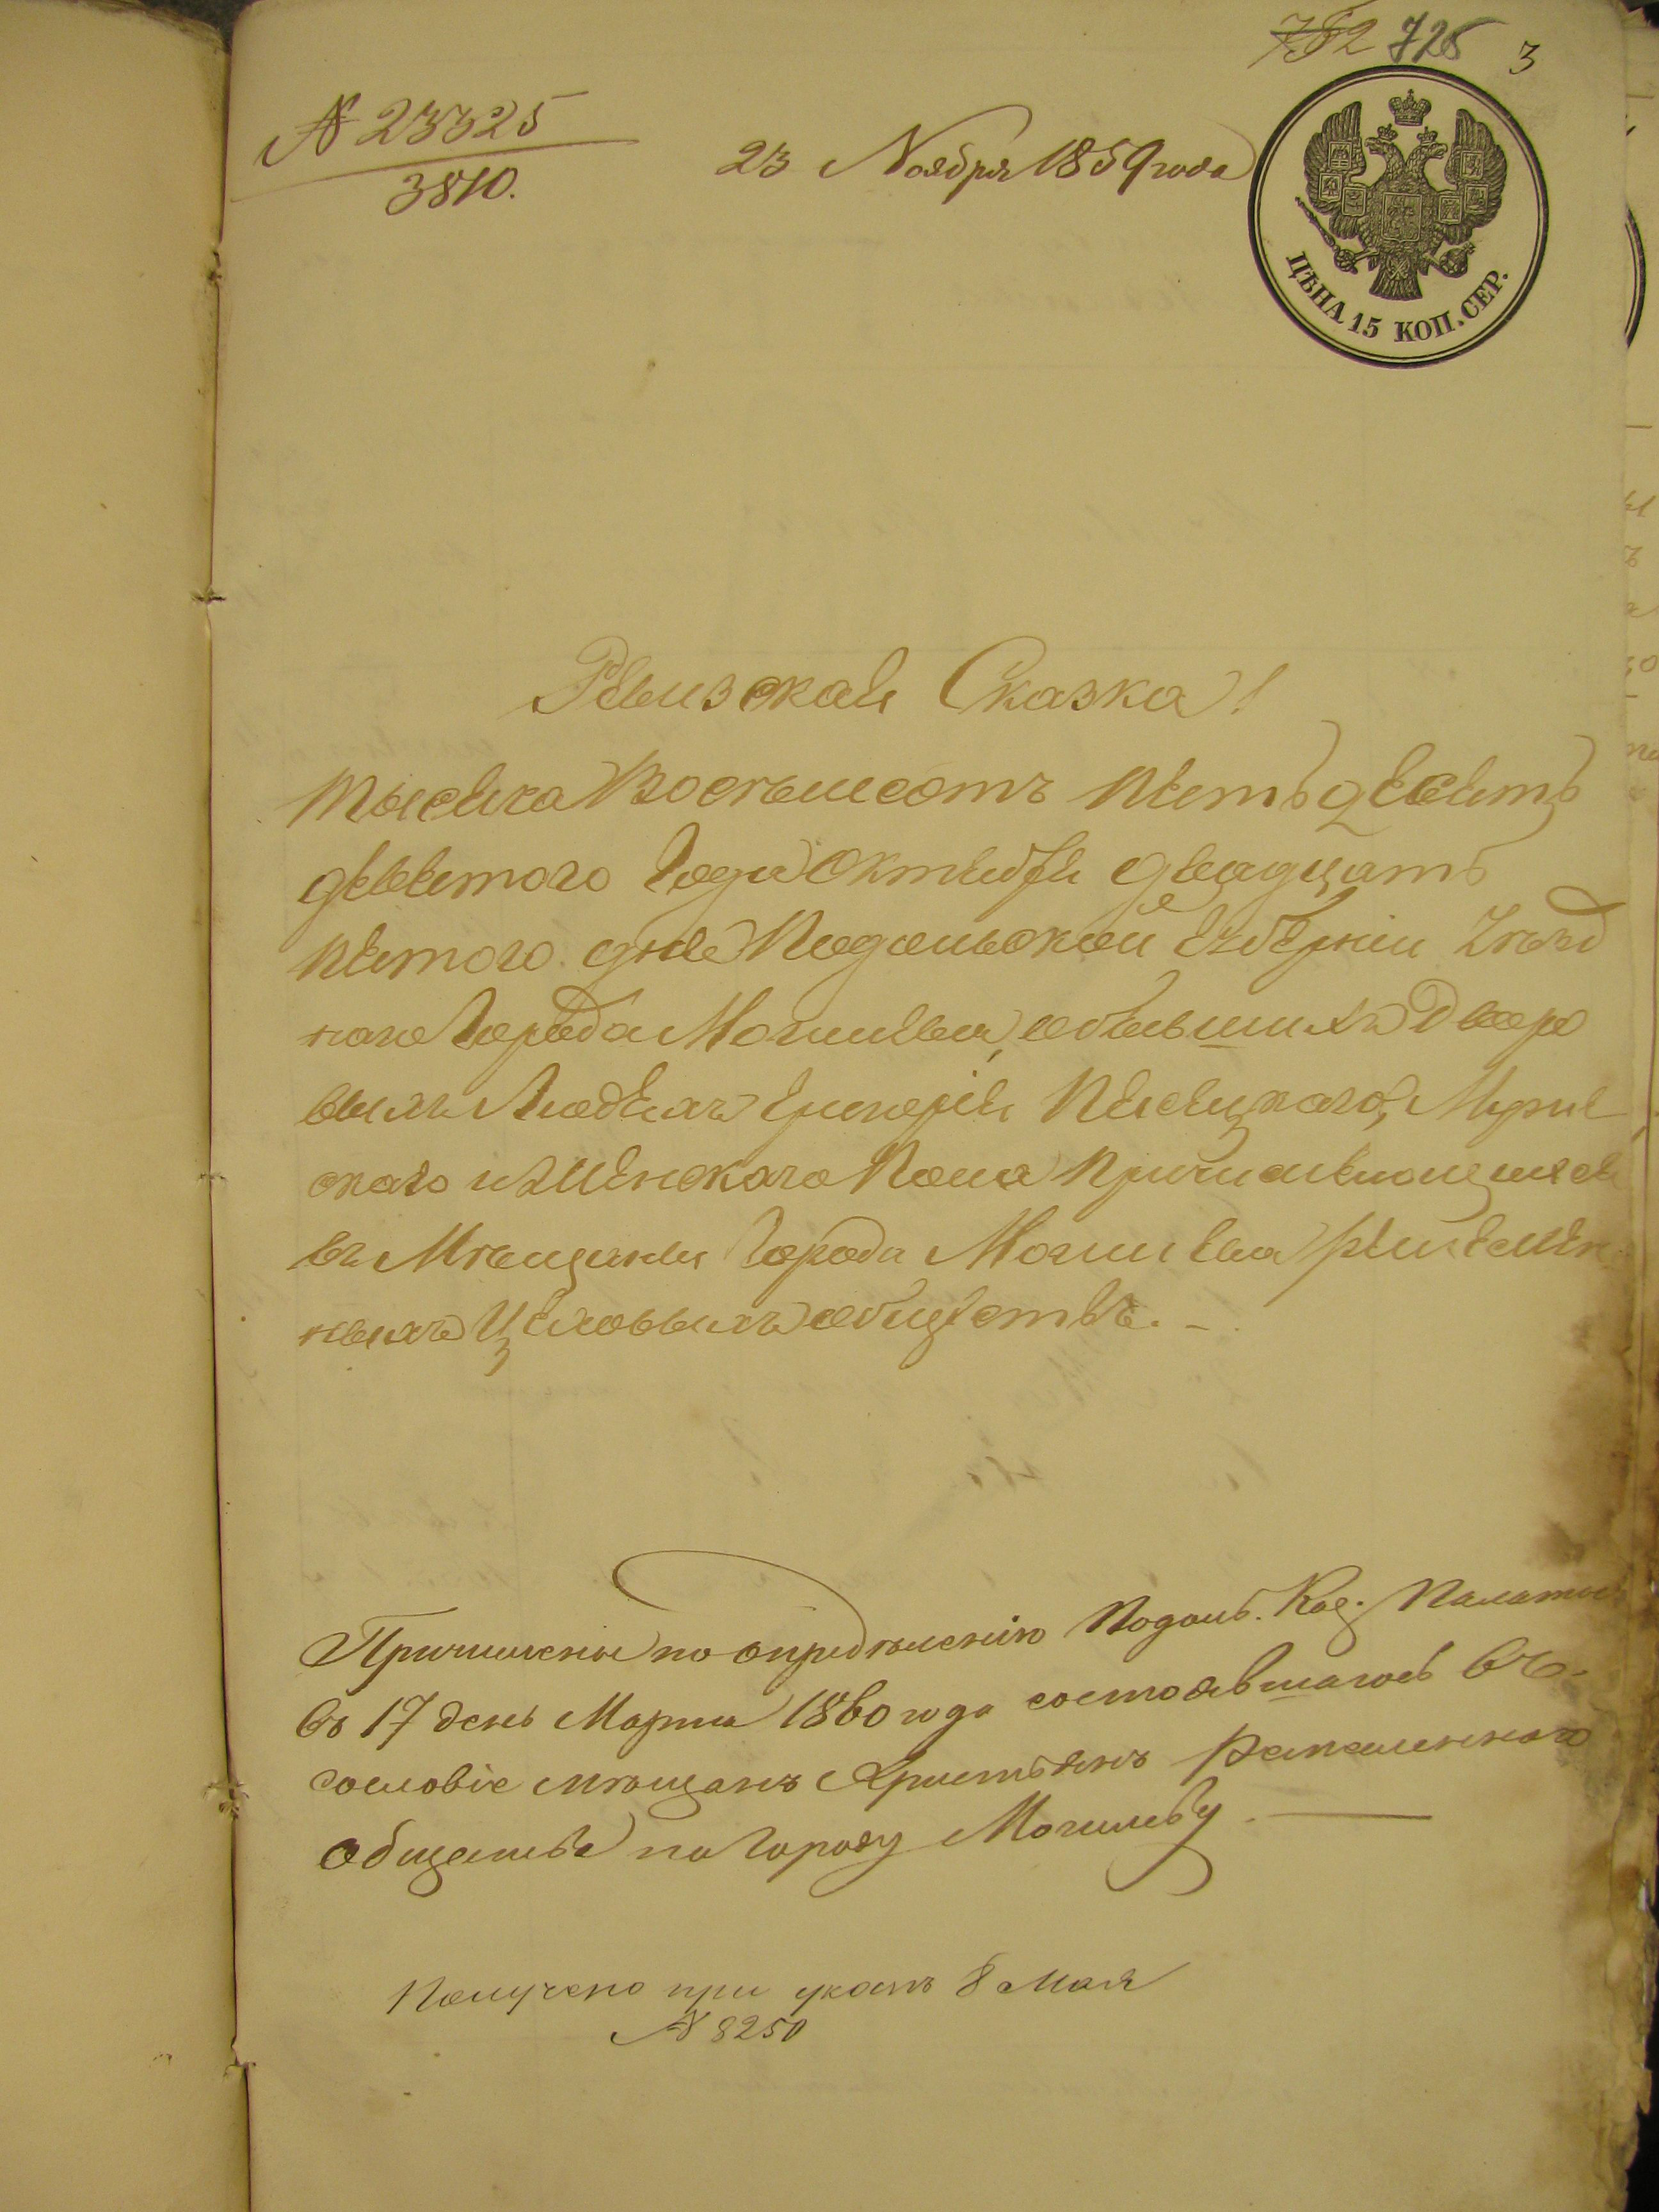 752 725 3
№ 23325
3810.
23 Ноября 1859 года
ЦѢНА 15 КОП. СЕР.
Ревизская Сказка!
Тысяча Восемьсотъ Пятьдесятъ
девятого Года Октября двадцать
Пятого дня Подольской Губерніи Уѣзд
наго Города Могилева, о бывшихъ Дворо
выхъ Людяхъ Григорія
скаго и Женскаго Пола Причисляющихся
въ Мѣщаны Города Могилева ремеслен
ныхъ Цеховыхъ обществъ. –
Причислены по опредѣленію Подоль. Каз. Палаты
въ 17 день Марта 1860 года состоявшагось въ
сословіе мѣщанъ Христьянъ Ремесленнаго
общества по городу Могилеву. —
Получено при указѣ 8 Мая
№ 8250